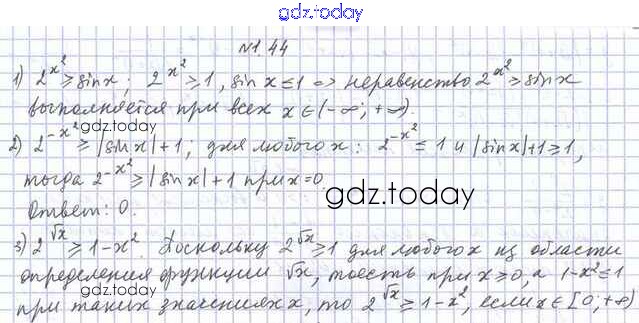 gdz.today
№1.44
1) 2^{x²} ≥ sin x; 2^{x²} ≥ 1, sin x ≤ 1 => неравенство 2^{x²} ≥ sin x
выполняется при всех x ∈ (-∞; +∞)
gdz.today
2) 2^{-x²} ≥ |sin x| + 1; для любого x: 2^{-x²} ≤ 1 и |sin x| + 1 ≥ 1,
gdz.today
тогда 2^{-x²} ≥ |sin x| + 1 при x = 0.
gdz.today
Ответ: 0.
3) 2^{√x} ≥ 1 - x². Поскольку 2^{√x} ≥ 1 для любого x из области
определения функции √x, то есть при x ≥ 0, а 1 - x² ≤ 1
gdz.today
при таких значениях x, то 2^{√x} ≥ 1 - x², если x ∈ [0; +∞)